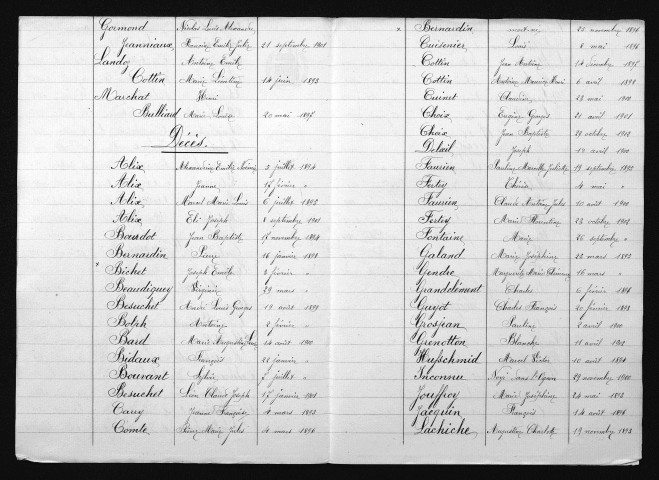 Gormond Nicolas Louis Alexandre
Jeanniaux Francine Emilie Julie 21 septembre 1901
Landoz Antoine Emile
Cottin Marie Léontine 14 juin 1893
Marchat Henri
Bulliard Marie Louise 20 mai 1898
Décès.
Alix Alexandrine Emilie 2 juillet 1894
Alix Jeanne 17 février "
Alix Marcel Marie Louis 6 juillet 1893
Alix Eli Joseph 8 septembre 1901
Bourdot Jean Baptiste 17 novembre 1894
Bernardin Pierre 16 janvier 1891
Bichet Joseph Emile 2 février "
Beaudiquey Virginie 29 mars "
Besuchet André Louis Georges 19 août 1899
Bolph Antoine 2 février "
Bard Marie Augustine 24 août 1900
Bidaux François 22 janvier "
Bouvant Sylvie 7 juillet "
Besuchet Léon Claude Joseph 17 janvier 1901
Carry Jeanne Françoise 4 mars 1893
Comte Pierre Marie Jules 4 mars 1896
Bernardin mort-né 25 novembre 1896
Cuisenier Louis 8 mai 1896
Cottin Jean Antoine 14 décembre 1895
Cottin Antoine Maurice Henri 6 avril 1898
Cuinet Claudine 23 mai 1900
Choix Eugène Georges 21 avril 1901
Choix Jean Baptiste 29 octobre 1902
Delœil Joseph 12 avril 1900
Faurien Pauline Marcelle Juliette 19 septembre 1893
Fertey Thérèse 4 mai "
Faurien Claude Antoine Jules 10 août 1901
Fertey Marie Florentine 23 octobre 1902
Fontaine Marie 26 septembre "
Galand Marie Joséphine 22 mars 1893
Gendre Marguerite Marie 16 mars "
Grandclément Charles 6 février 1894
Guyot Charles François 20 février 1893
Grosjean Pauline 2 avril 1900
Grenotton Blanche 11 avril 1902
Huffschmid Marcel Victor 10 août 1894
Inconnu Noyé dans l'Ognon 29 novembre 1900
Jouffroy Marie Joséphine 24 mai 1893
Jacquin François 14 août 1896
Lachiche Augustine Charlotte 19 novembre 1893